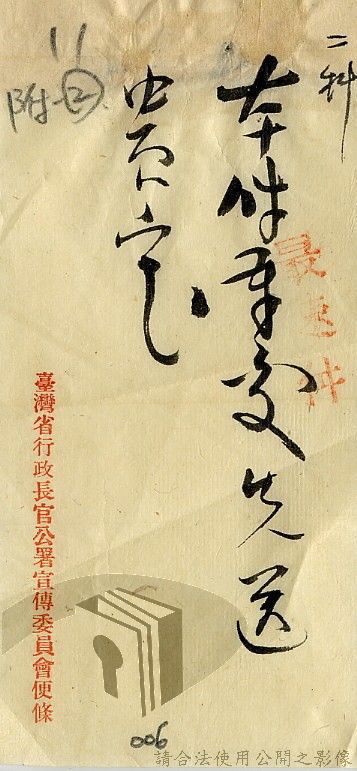 二科
最速件
本件
交先送
附
臺灣省行政長官公署宣傳委員會便條
006
請合法使用公開之影像